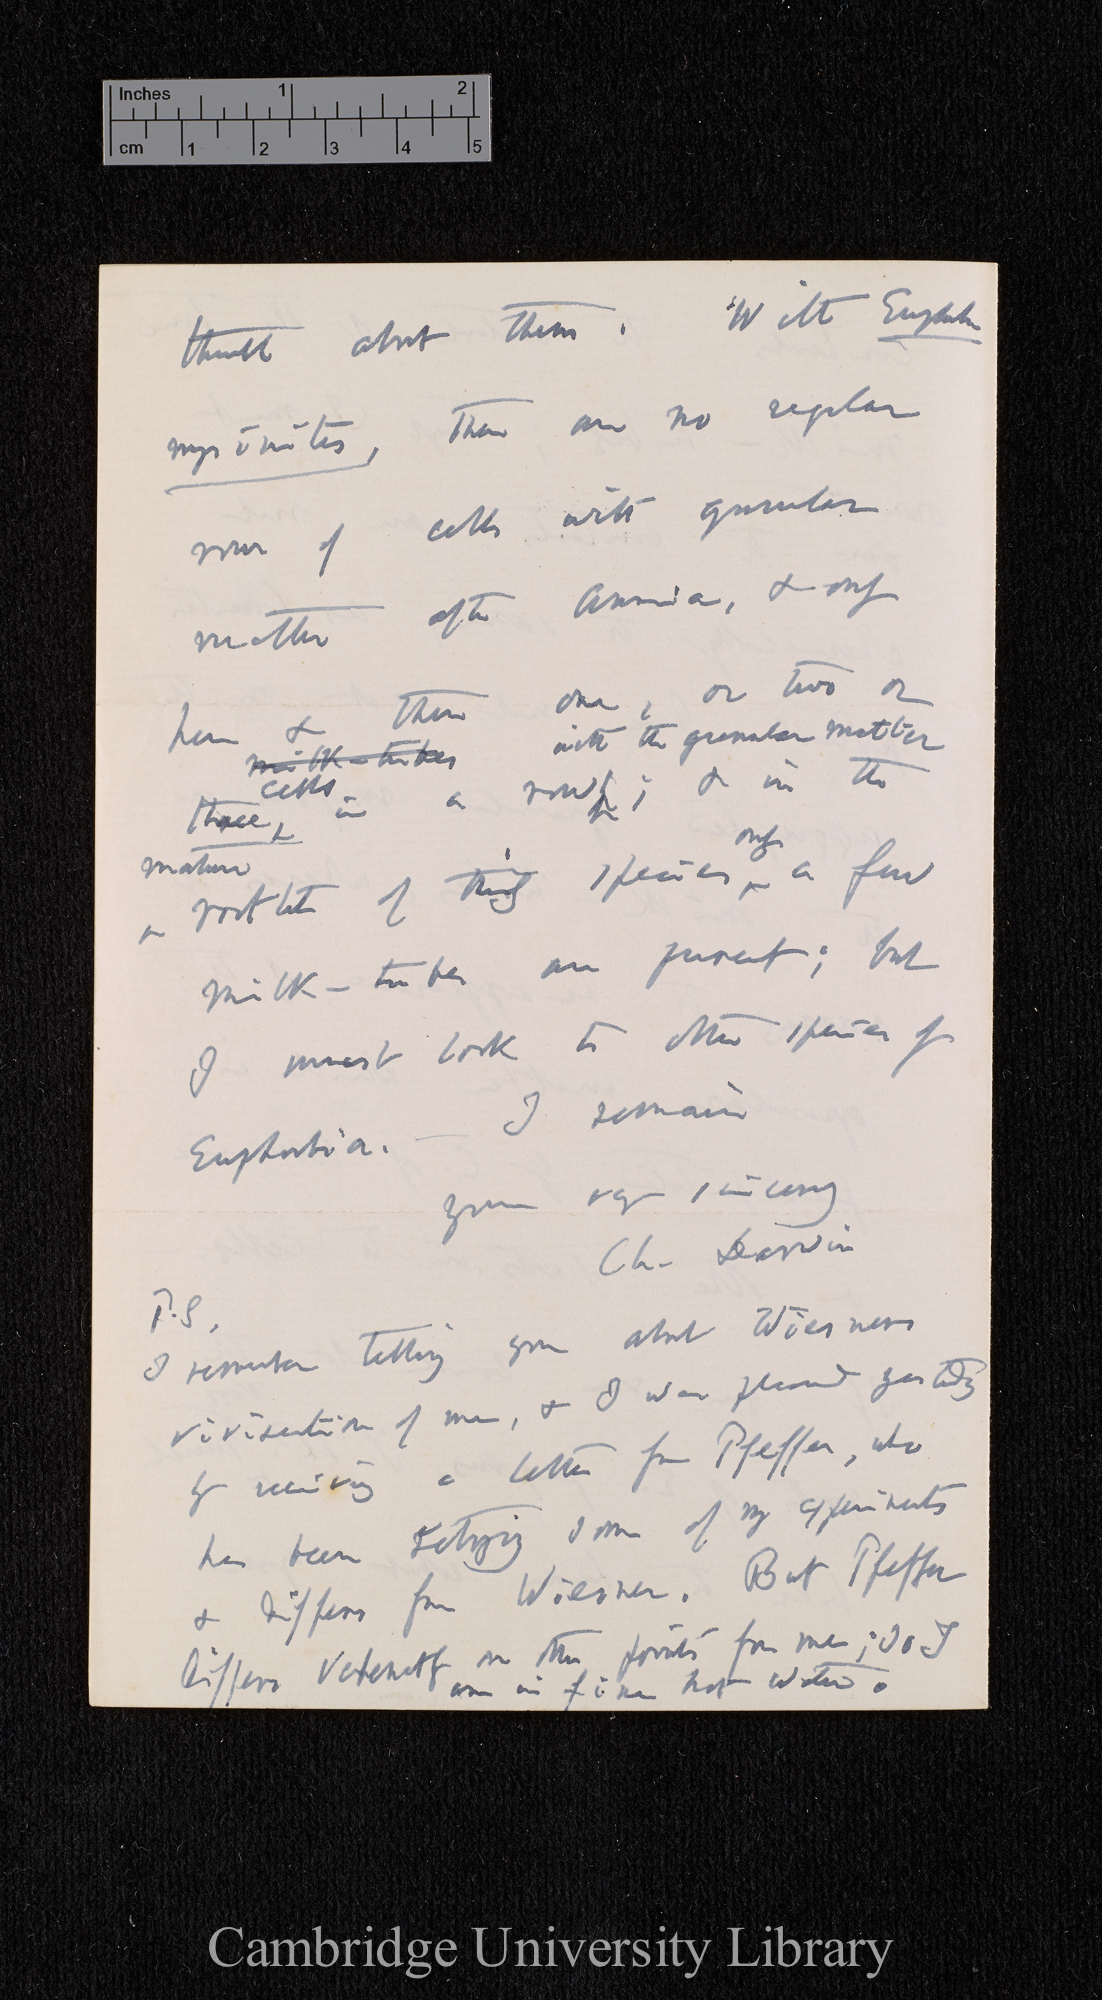 Inches 1 2
cm 1 2 3 4 5
trouble about them. With Euphorbia
myrsinites, there are no regular
rows of cells with granular
matter after Ammonia, & only
here & there one, or two or
milk-tubes with the granular matter
cells
three, in a row; & in the
mature only
rootlets of this species a few
milk-tubes are present; but
I must look to other species of
Euphorbia. — I remain
yours very sincerely
Ch. Darwin
P.S.
I remember telling you about Wiesners
vivisection of me, & I was pleased yesterday
by receiving a letter from Pfeffer, who
has been retrying some of my experiments
& differs from Wiesner. But Pfeffer
differs vehemently on other points from me; so I
am in fine hot water.
Cambridge University Library